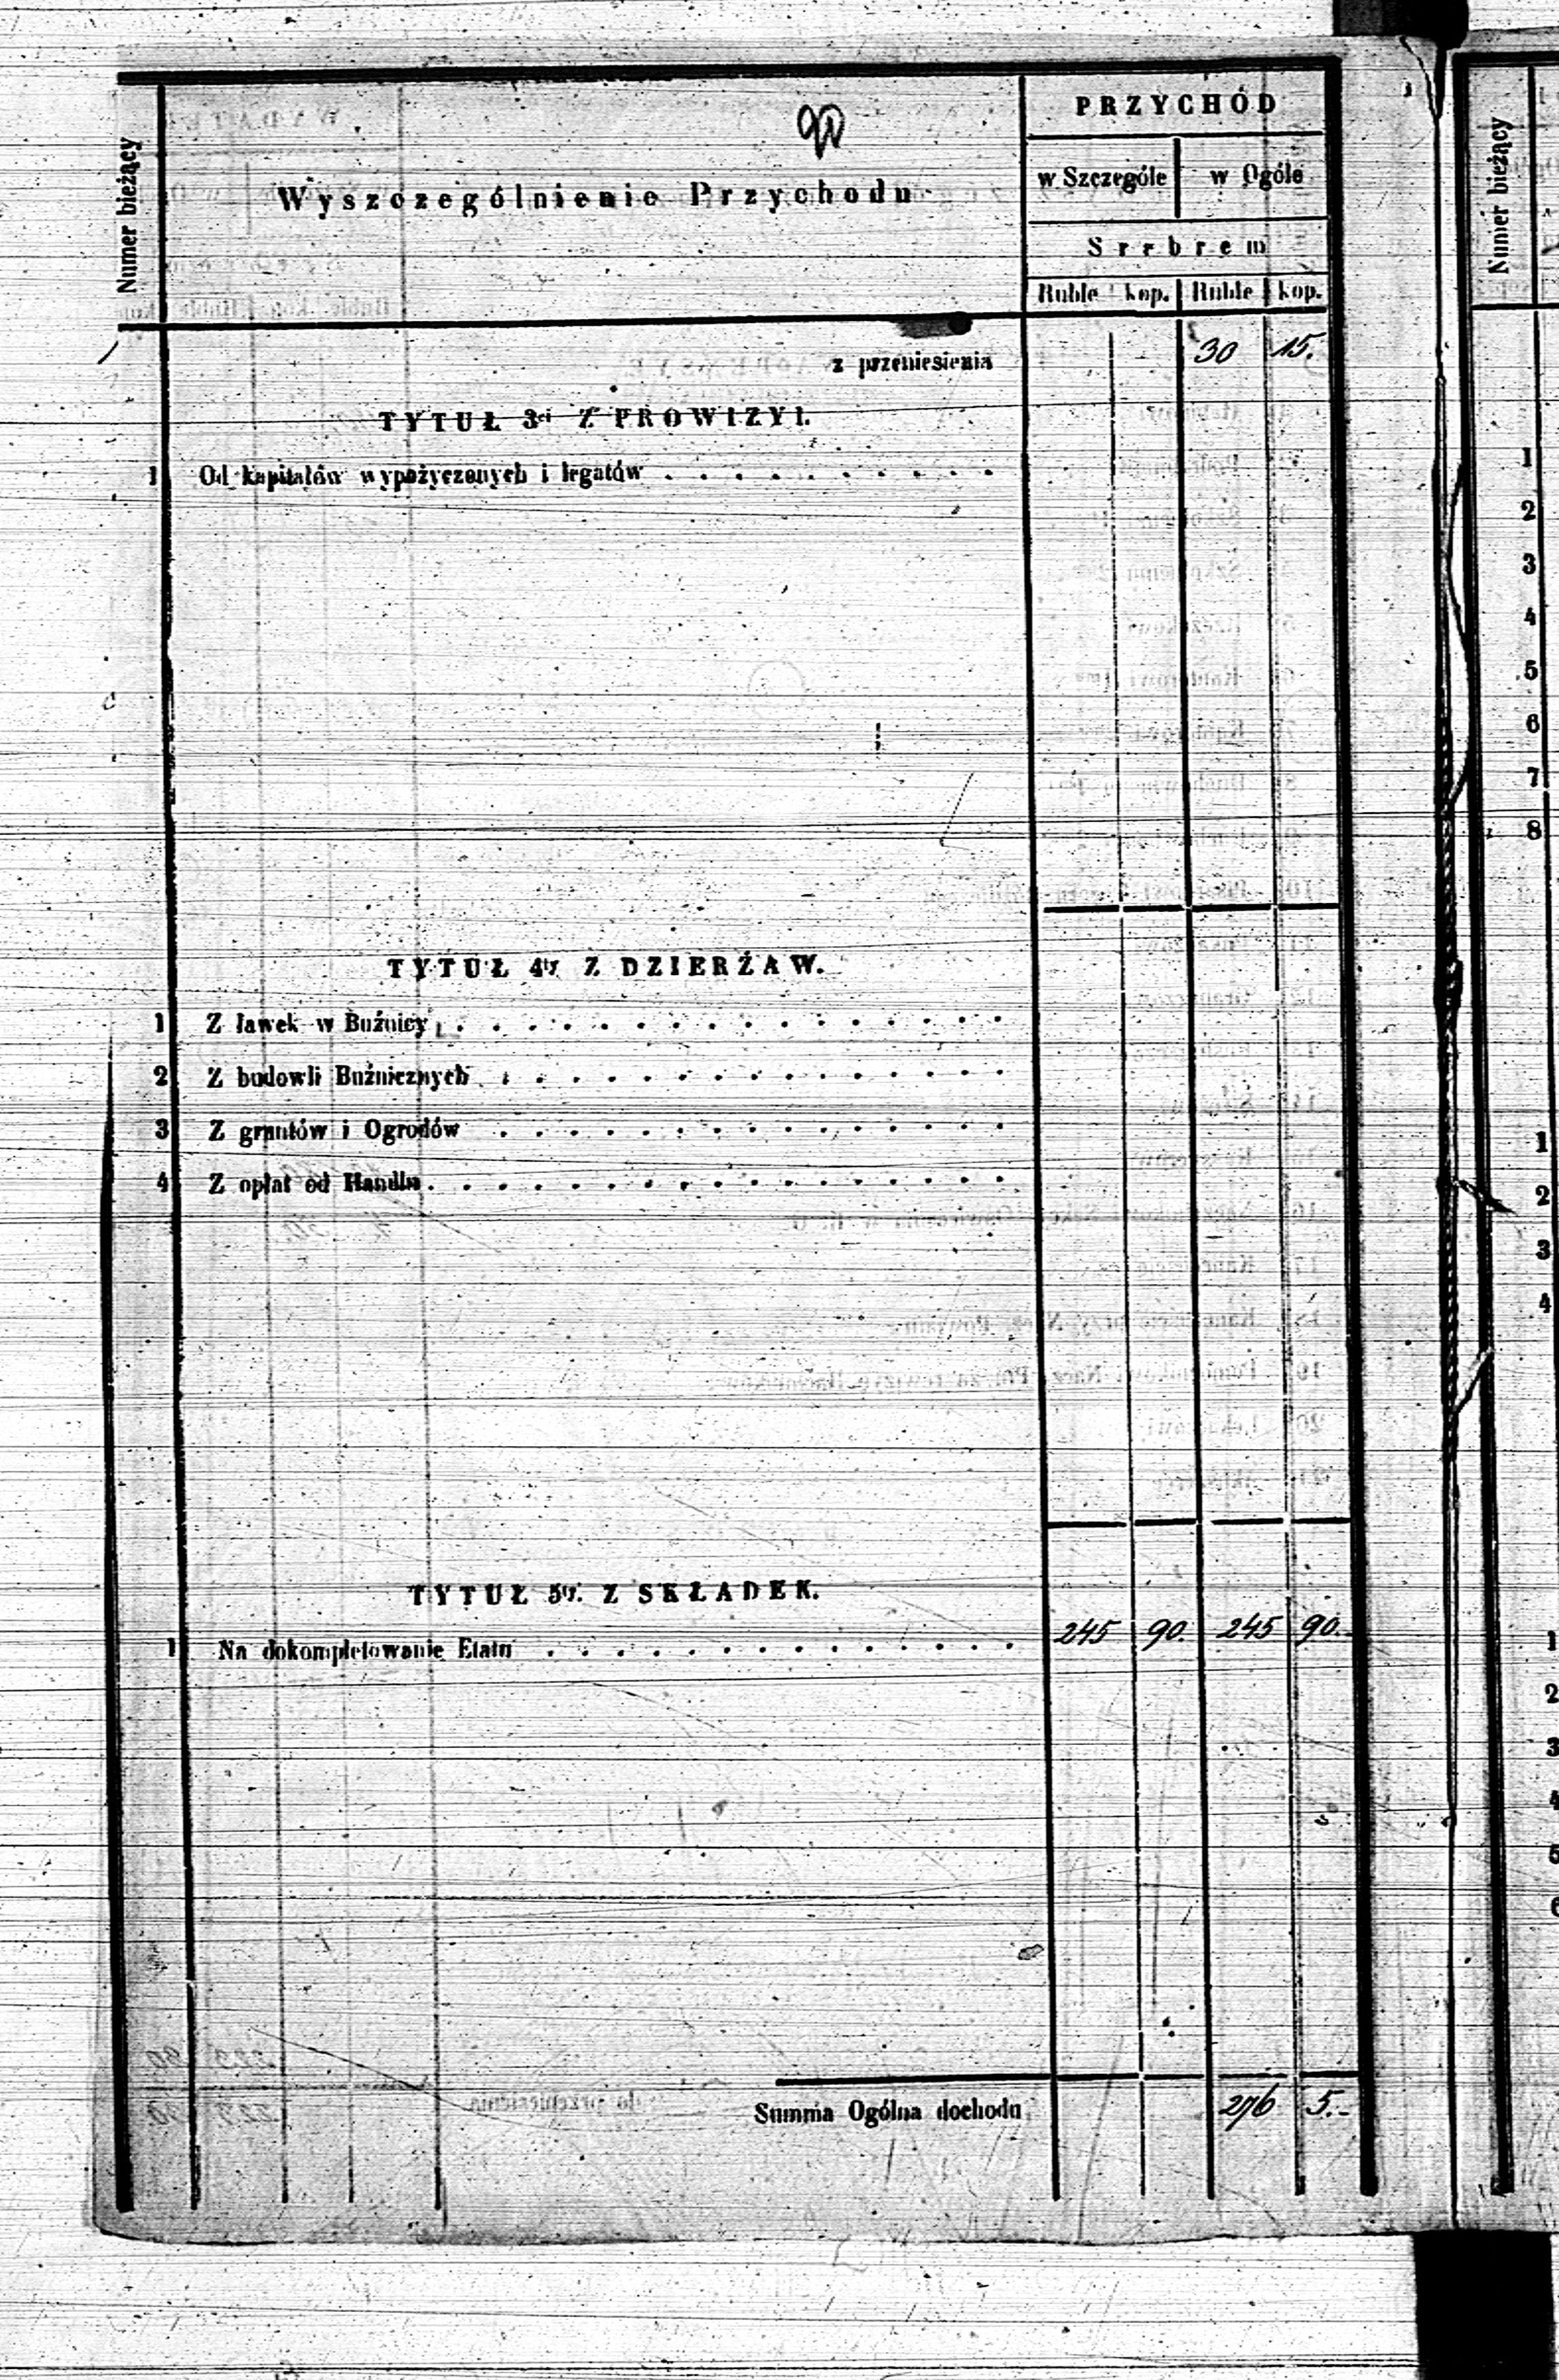 PRZYCHÓD
Numer bieżący
Wyszczególnienie Przychodu
w Szczególe w Ogóle
Srebrem
Ruble kop. Ruble kop.
z przeniesienia 30 15.
TYTUŁ 3ci Z PROWIZYI.
1 Od kapitałów wypożyczonych i legatów . . . . . . . . . .
TYTUŁ 4ty Z DZIERŻAW.
1 Z ławek w Bużnicy . . . . . . . . . . . . . . . .
2 Z budowli Bużnicznych . . . . . . . . . . . . . . .
3 Z gruntów i Ogrodów . . . . . . . . . . . . . . .
4 Z opłat od Handlu . . . . . . . . . . . . . . . . .
TYTUŁ 5ty. Z SKŁADEK.
1 Na dokompletowanie Etatu . . . . . . . . . . . . . . 245 90. 245 90.
Summa Ogólna dochodu 276 5.-
Numer bieżący
1
2
3
4
5
6
7
8
1
2
3
4
1
2
3
4
5
6